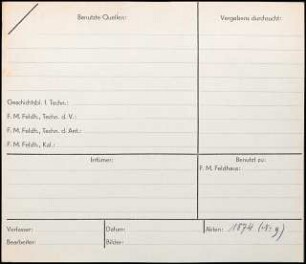 Benutzte Quellen:
Vergebens durchsucht:
Geschichtsbl. f. Techn.:
F. M. Feldh., Techn. d. V.:
F. M. Feldh., Techn. d. Ant.:
F. M. Feldh., Kal.:
Irrtümer:
Benutzt zu:
F. M. Feldhaus:
Verfasser:
Datum:
Akten: 1874
Bearbeiter:
Bilder: